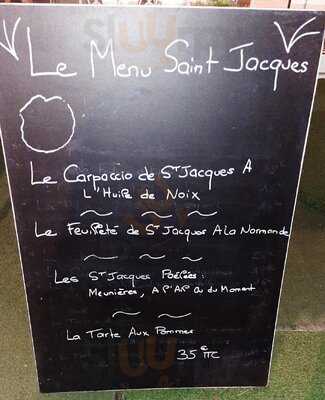 Le Menu Saint Jacques
Le Carpaccio de St Jacques A
L'Huile de Noix
Le Feuilleté de St Jacques A La Normande
Les St Jacques Poêlées :
Meunières, A l'Ail ou du Moment
La Tarte Aux Pommes
35€ TTC